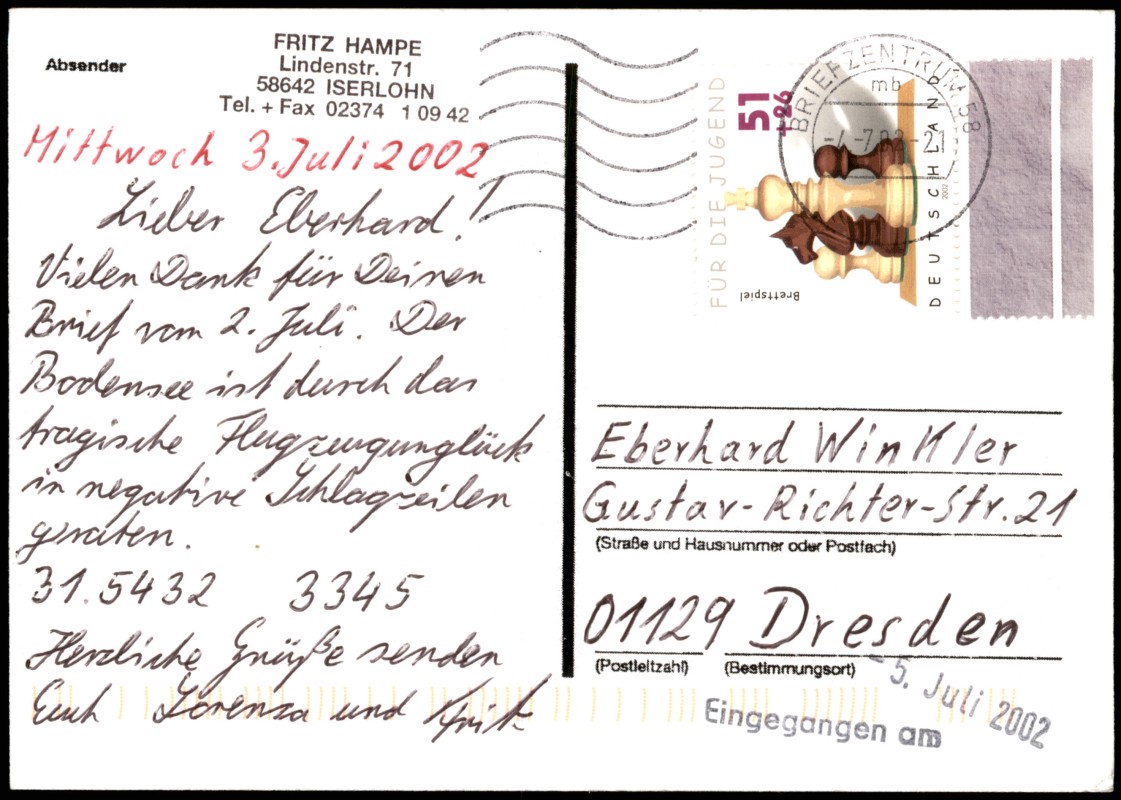 Absender
FRITZ HAMPE
Lindenstr. 71
58642 ISERLOHN
Tel. + Fax 02374 1 09 42
Mittwoch 3. Juli 2002
Lieber Eberhard!
Vielen Dank für Deinen
Brief vom 2. Juli. Der
Bodensee ist durch das
tragische Flugzeugunglück
in negative Schlagzeilen
geraten.
31.5432 3345
Herzliche Grüße senden
Euch Lorenza und Fritz
BRIEFZENTRUM 58
mb
-21
FÜR DIE JUGEND
51
+26
Brettspiel
DEUTSCHLAND
2002
Eberhard Winkler
Gustav-Richter-Str. 21
(Straße und Hausnummer oder Postfach)
01129 Dresden
(Postleitzahl) (Bestimmungsort)
Eingegangen am
-5. Juli 2002